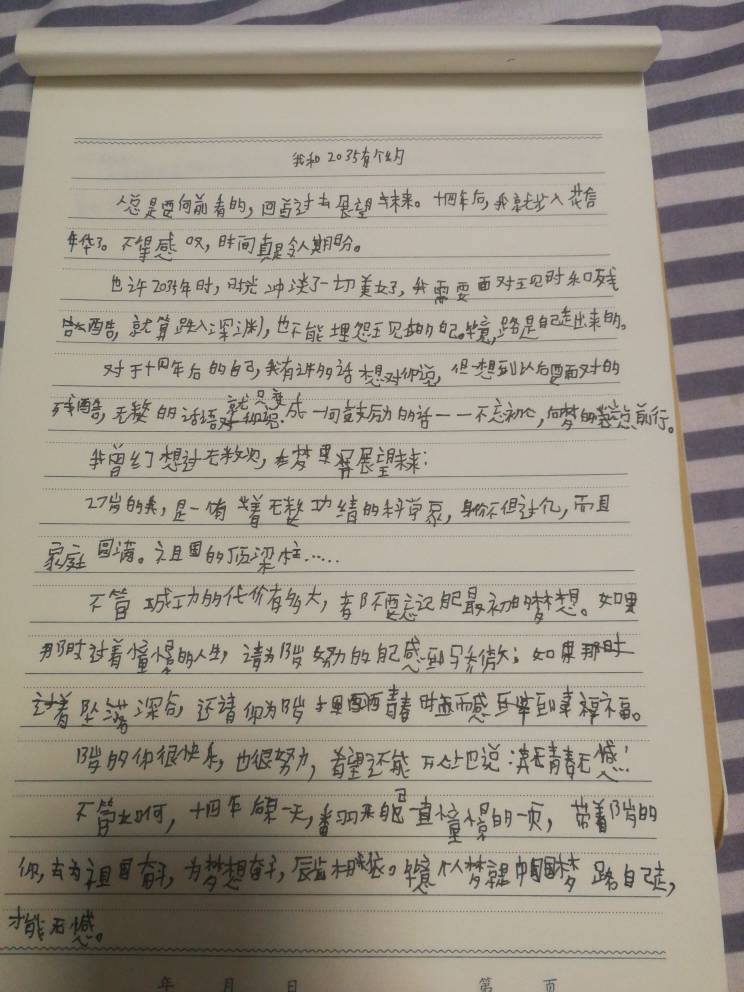 我和2035有个约
人总是要向前看的,回首过去展望未来。十四年后,我就步入花信
年华了。不曾感叹,时间真是令人期盼。
也许2035年时,时光冲淡了一切美好,我需要面对现时和残
酷,就算跌入深渊,也不能埋怨现在的自己。毕竟,路是自己走出来的。
对于十四年后的自己,我有许多的话想对你说,但想到以后要面对的
残酷,无数的话语就只变成一句鼓励的话——不忘初心,向梦的
前行。
我曾经想过无数次,在梦里展望未来:
27岁的我,是一个有着无数功绩的科学家,身价不但过亿,而且
家庭圆满。祖国的顶梁柱……
不管成功的代价有多大,都不要忘记自己最初的梦想。如果
那时过着憧憬的人生,请为13岁努力的自己感到骄傲;如果那时
过着坠落深谷,还请你为13岁
青春时
而感到
幸福。
13岁的你很快乐,也很努力,希望还能
说:
青春无憾!
不管如何,十四年后某一天,翻开自己一直憧憬的一页,带着13岁的
你,去为祖国奋斗,为梦想奋斗,
相依。毕竟个人梦就是中国梦
路自己走,
才能无憾。
年 月 日 第 页